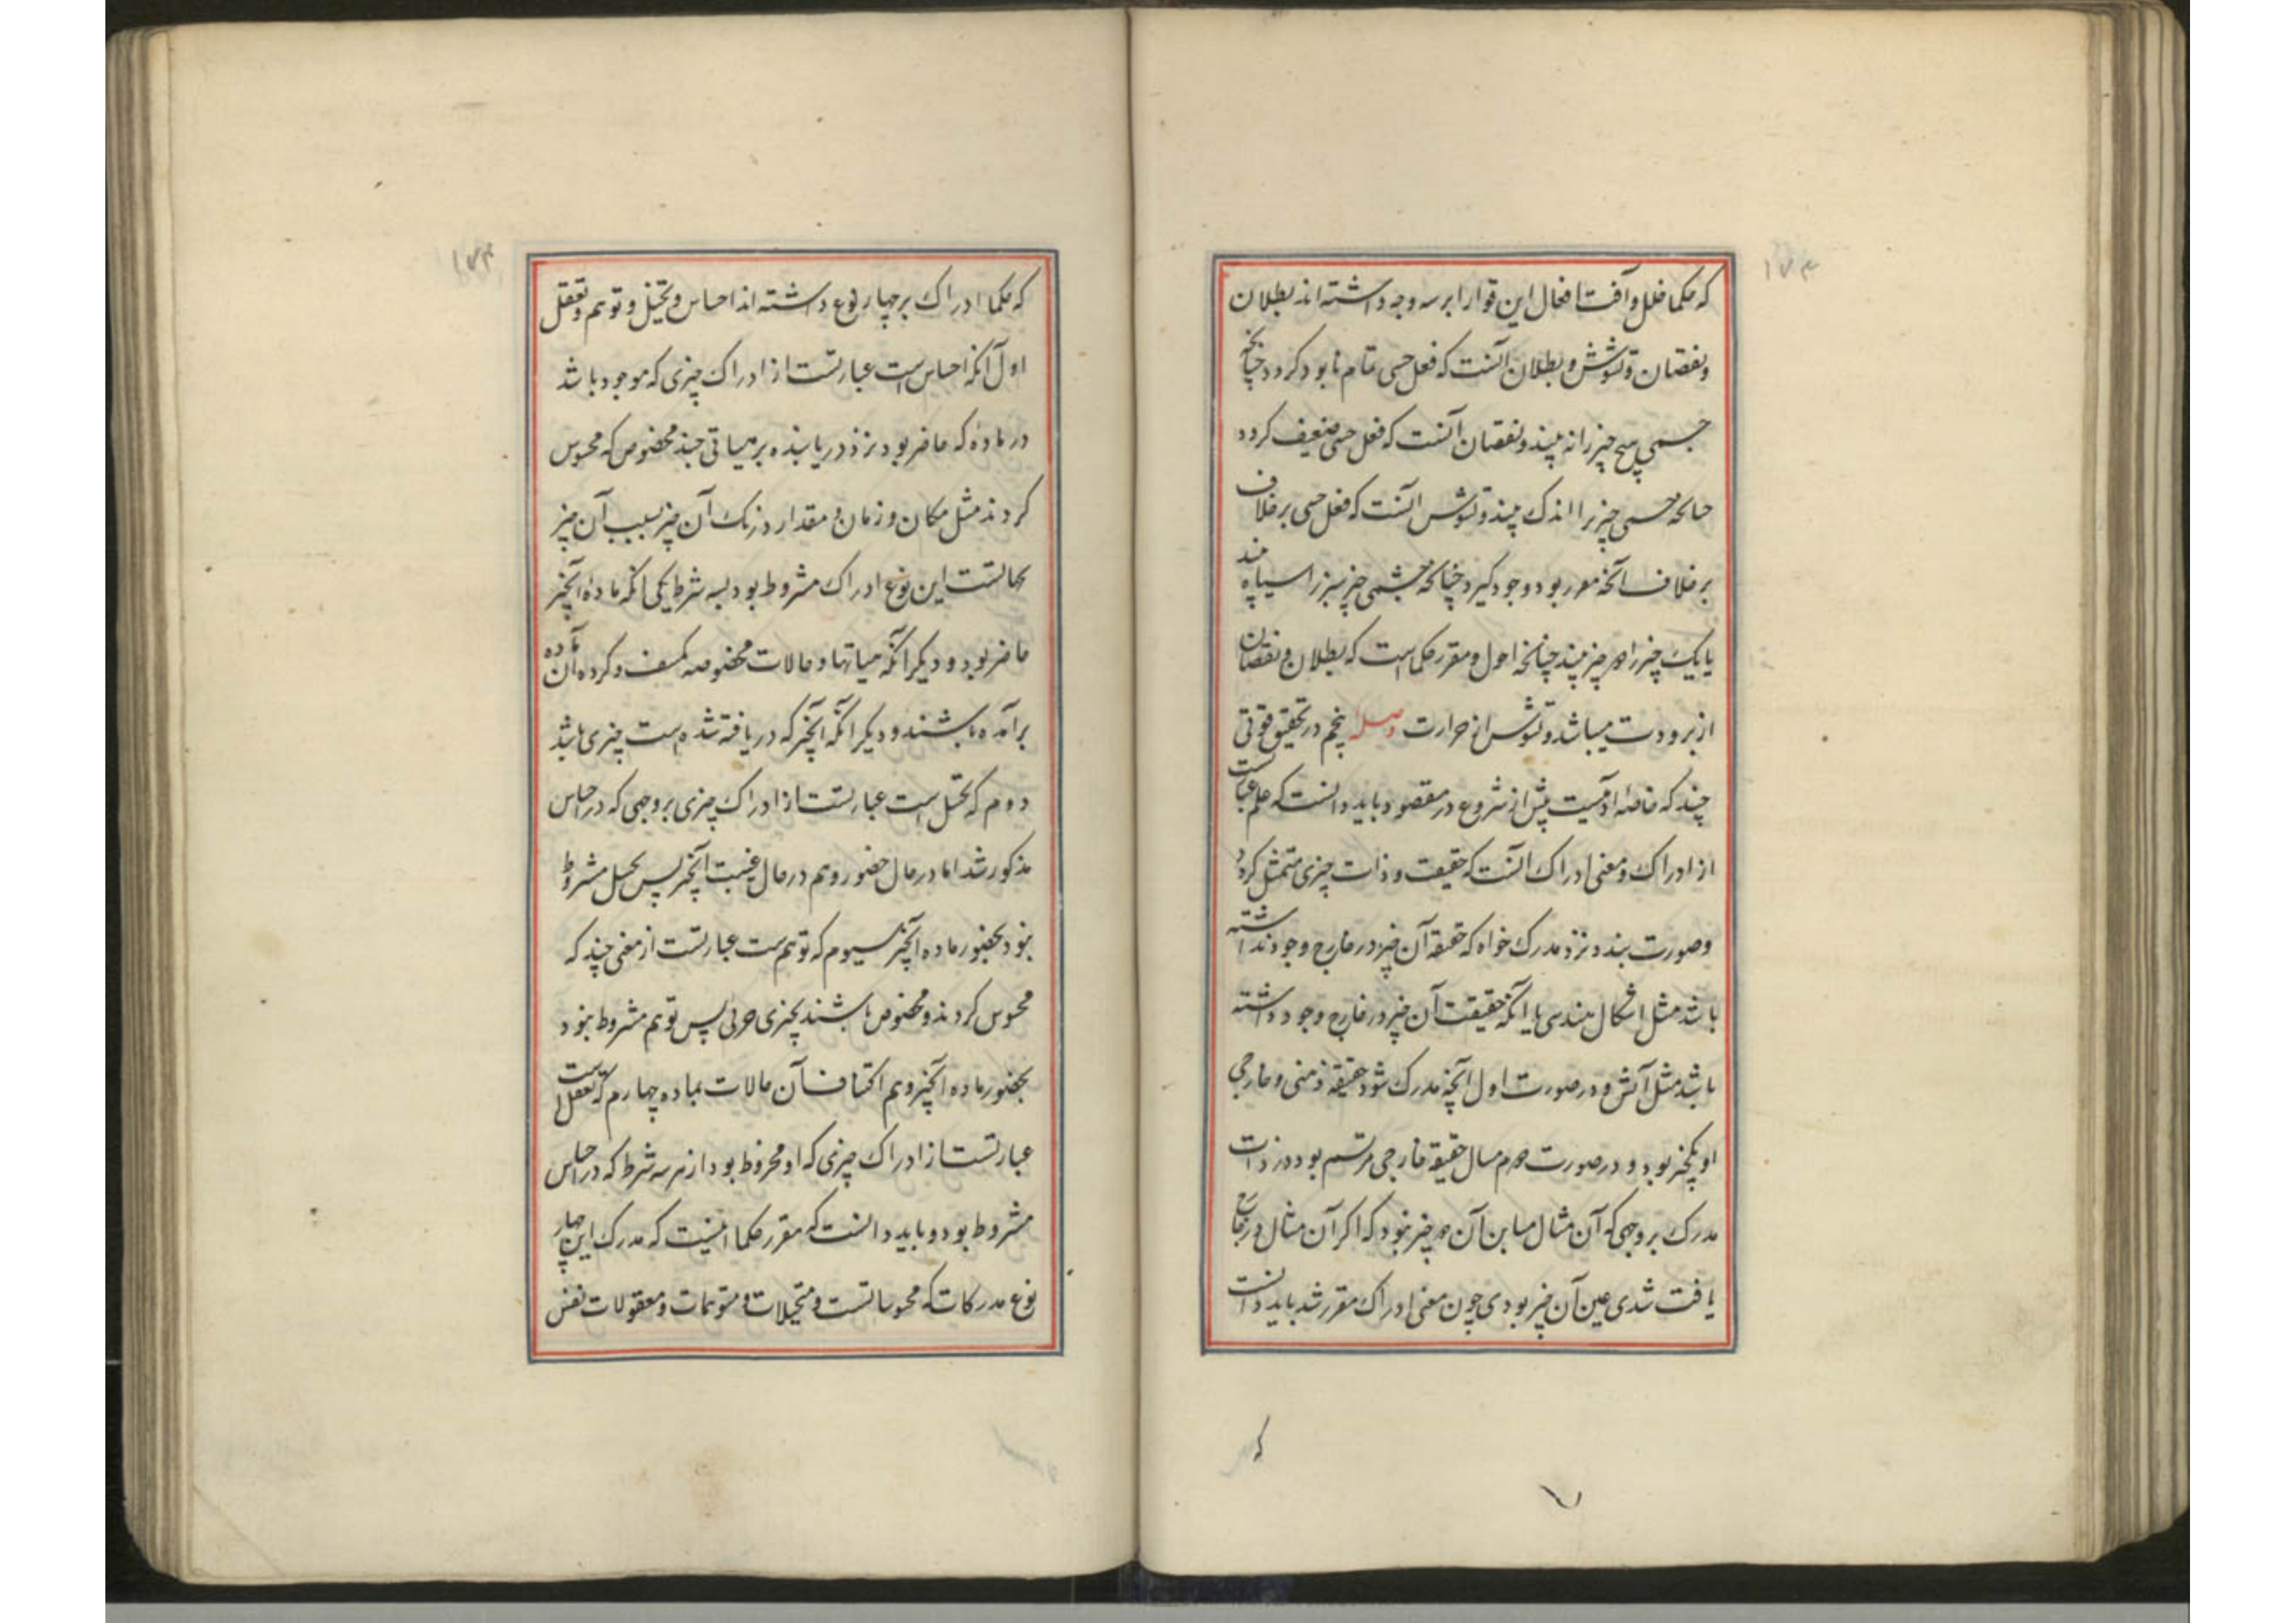 ۱۷۳
که حکما خلل و آفت افعال این قوا را بر سه وجه داشته اند بطلان
و نقصان و تشوش و بطلان آنست که فعل حسی تمام نابود کردد چنانچه
چشمی هیچ چیز را نه بیند و نقصان آنست که فعل حسی ضعیف کردد
چنانچه چشمی چیز را اندک بیند و تشوش آنست که فعل حسی بر خلاف
بر خلاف آنچه مقرر بود وجود گیرد چنانکه چشمی چیز سبز را سیاه بیند
یا یک چیز را دو چیز بیند چنانچه احول و مقرر حکماست که بطلان و نقصان
از برودت میباشد و تشوش از حرارت وصله پنجم در تحقیق قوتی
چند که خاصه آدمیست پیش از شروع در مقصود باید دانست که علم عبارتست
از ادراک و معنی ادراک آنست که حقیقت و ذات چیزی متمثل کردد
و صورت بندد نزد مدرک خواه که حقیقة آن چیز در خارج وجود نداشته
باشد مثل اشکال هندسی یا آنکه حقیقت آن چیز در خارج وجود داشته
باشد مثل آتش و در صورت اول آنچه مدرک شود حقیقة ذهنی و خارجی
او یکچیز بود و در صورت دوم مثال حقیقة خارجی مرتسم بود در ذات
مدرک بر وجهی که آن مثال مباین آن چیز نبود که اکر آن مثال در خارج
یافت شدی عین آن چیز بودی چون معنی ادراک مقرر شد باید دانست
که
۷
۱۷۴
که حکما ادراک بر چهار نوع داشته اند احساس و تخیل و توهم و تعقل
اول آنکه احساس است عبارتست از ادراک چیزی که موجود باشد
در ماده که حاضر بود نزد دریابنده بر هیاتی چند مخصوص که محسوس
کردند مثل مکان و زمان و مقدار و رنک آن چیز بسبب آن چیز
بحالتست این نوع ادراک مشروط بود بسه شرط یکی آنکه ماده آنچیز
حاضر بود و دیکر آنکه هیاتها و حالات مخصوصه مکتنف و کرده آن ماده
برآمده باشند و دیکر آنکه آنچیز که دریافته شده است چیزی باشد
دوم که تخیل است عبارتست از ادراک چیزی بر وجهی که در احساس
مذکور شد اما در حال حضور و هم در حال غیبت آنچیز پس تخیل مشروط
نبود بحضور ماده آنچیز سیوم که توهم ست عبارتست از معنی چند که
محسوس کردند و مخصوص باشند بچیزی جزئی پس توهم مشروط نبود
بحضور ماده آنچیز و هم اکتناف آن حالات بماده چهارم که تعقل است
عبارتست از ادراک چیزی که او محروط بود از هر سه شرط که در احساس
مشروط بود و باید دانست که مقرر حکما اینست که مدرک این چهار
نوع مدرکات که محسوساتست و متخیلات و متوهمات و معقولات نفس